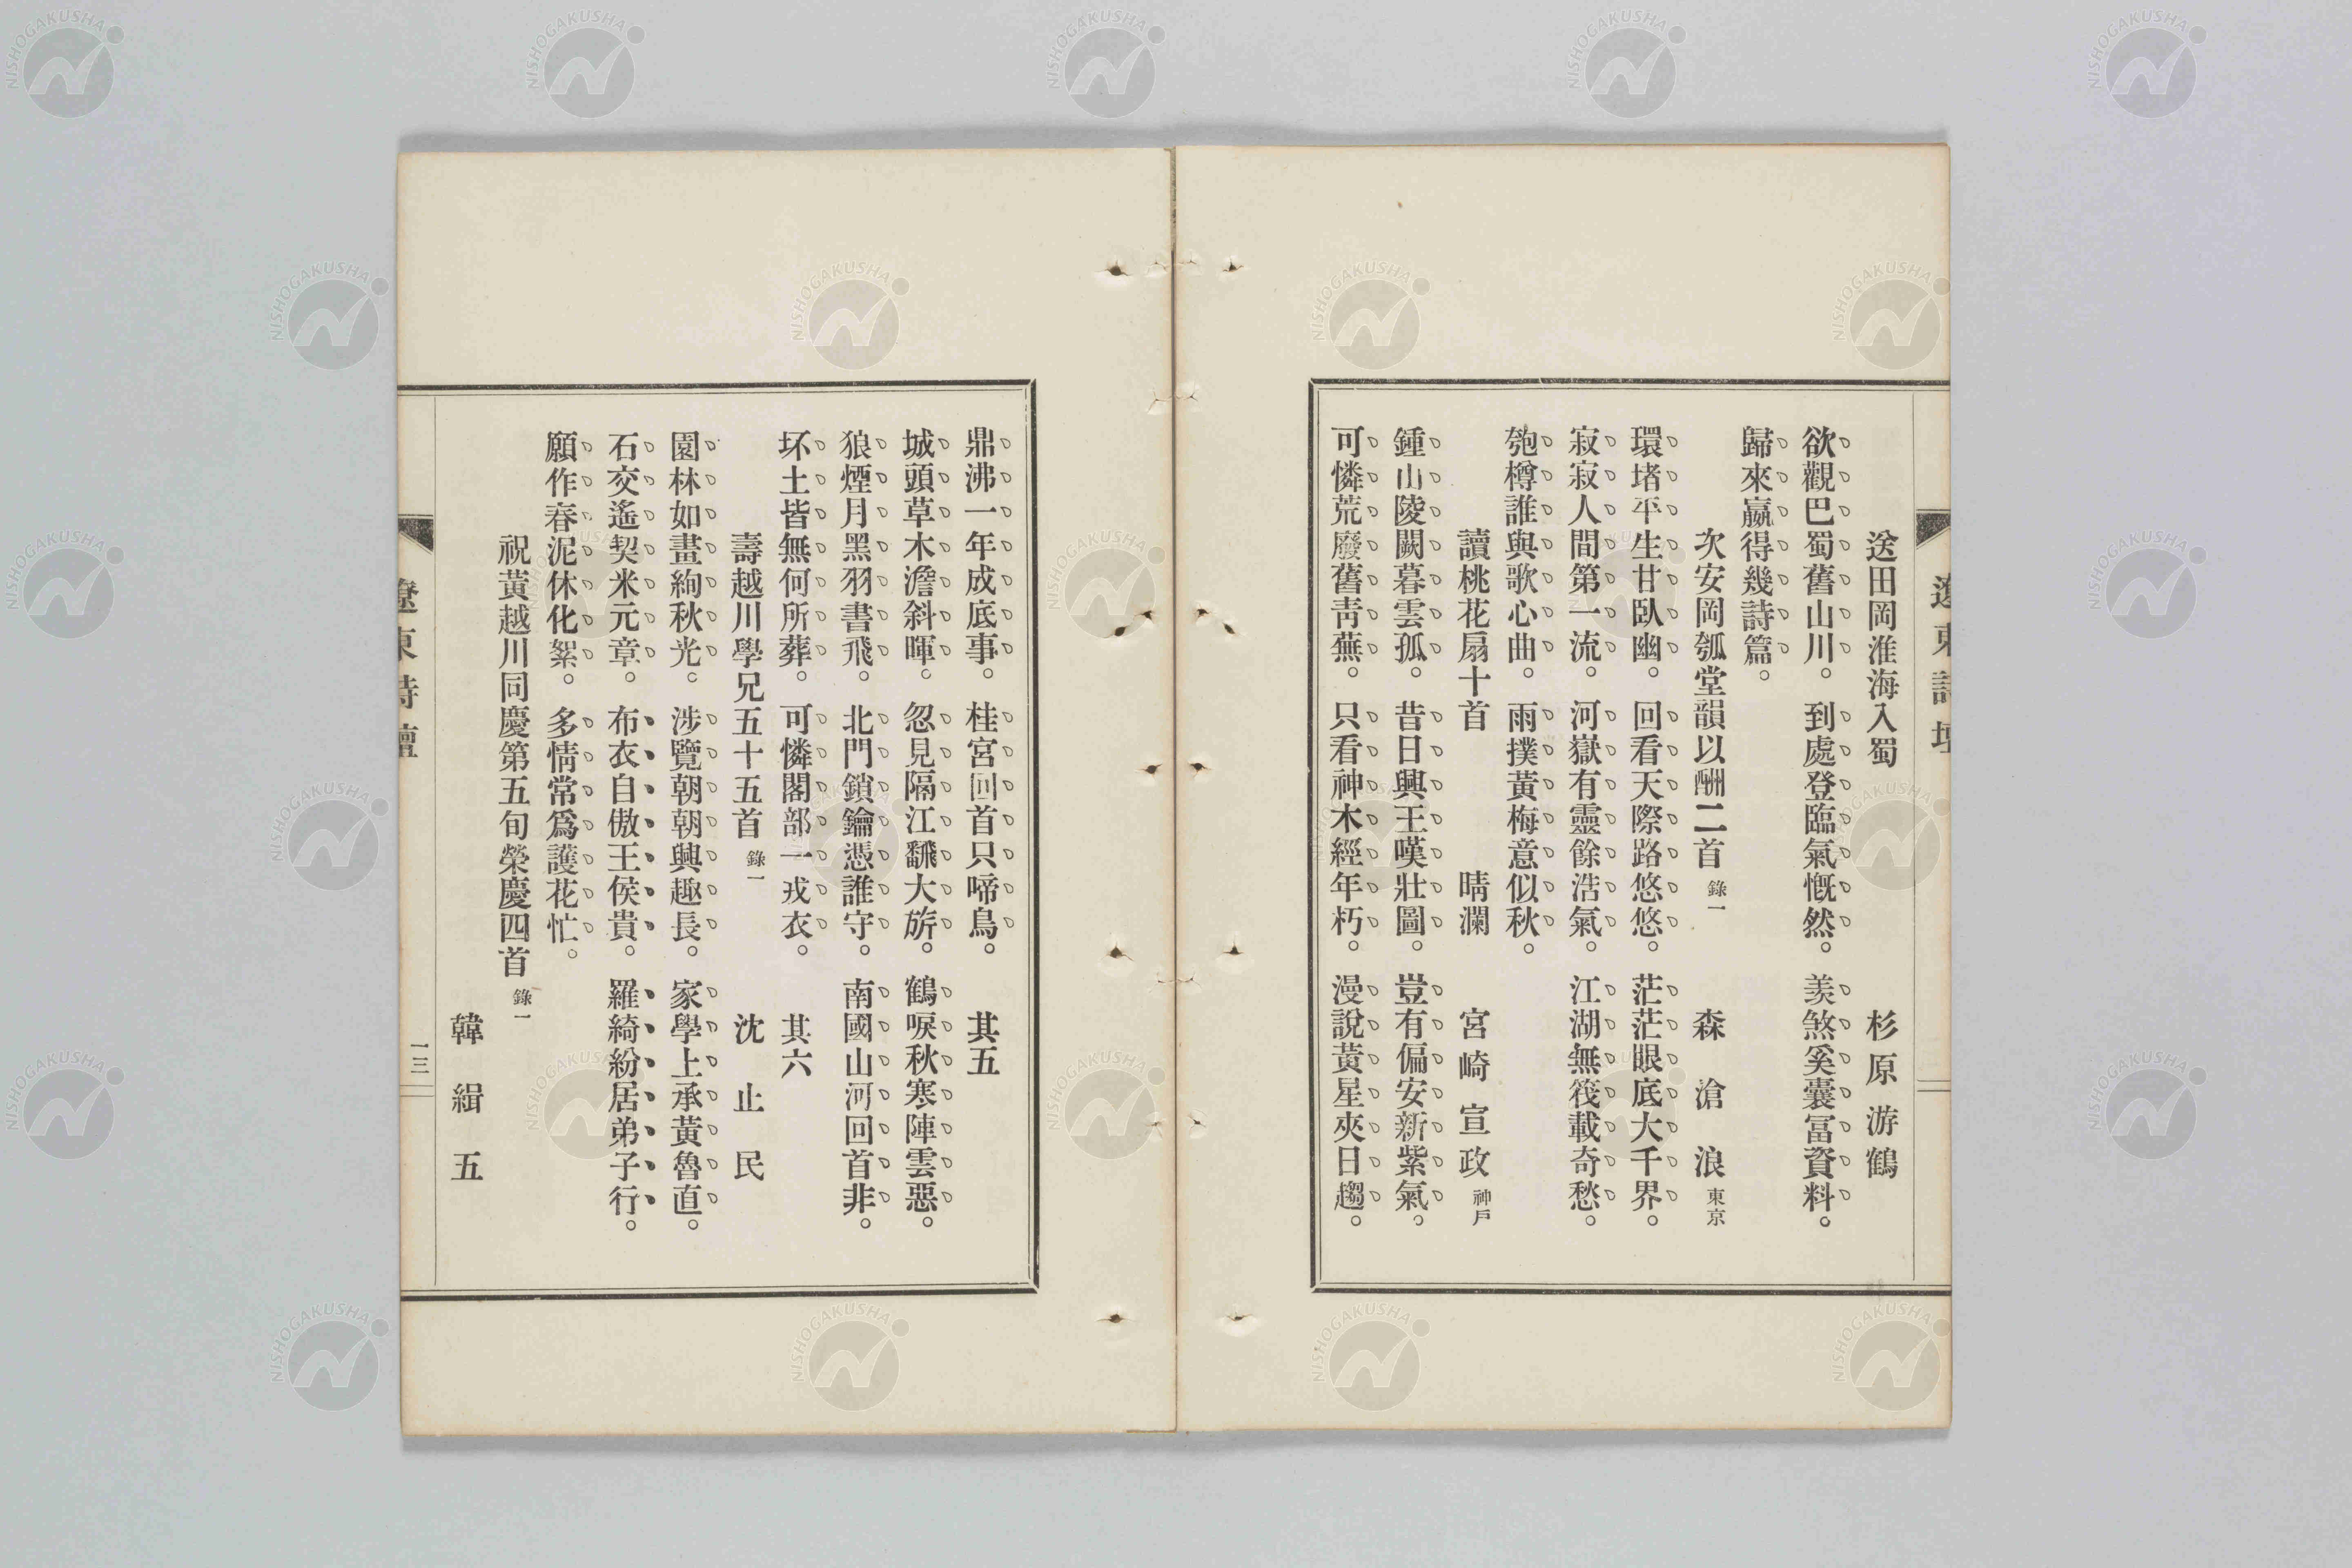 遼東詩壇
送田岡淮海入蜀 杉原游鶴
欲觀巴蜀舊山川。到處登臨氣慨然。羨煞奚囊冨資料。
歸來嬴得幾詩篇。
次安岡瓠堂韻以酬二首 錄一 森滄浪 東京
環堵平生甘臥幽。回看天際路悠悠。茫茫眼底大千界。
寂寂人間第一流。河嶽有靈餘浩氣。江湖無筏載奇愁。
匏樽誰與歌心曲。雨撲黃梅意似秋。
讀桃花扇十首 晴瀾 宮崎宣政 神戶
鍾山陵闕暮雲孤。昔日興王嘆壯圖。豈有偏安新紫氣。
可憐荒廢舊靑蕪。只看神木經年朽。漫說黃星夾日趨。
鼎沸一年成底事。桂宮回首只啼鳥。 其五
城頭草木澹斜暉。忽見隔江飜大旂。鶴唳秋寒陣雲惡。
狼煙月黑羽書飛。北門鎖鑰憑誰守。南國山河回首非。
坏土皆無何所葬。可憐閣部一戎衣。 其六
壽越川學兄五十五首 錄一 沈止民
園林如畫絢秋光。涉覽朝朝興趣長。家學上承黃魯直。
石交遙契米元章。布衣自傲王侯貴。羅綺紛居弟子行。
願作春泥休化絮。多情常爲護花忙。
祝黃越川同慶第五旬榮慶四首 錄一
韓緝五
遼東詩壇
一三
NISHOGAKUSHA